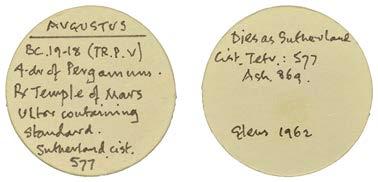 AUGUSTUS
BC.19-18 (TR.P.V)
4-dr of Pergamum.
Rx Temple of Mars
Ultor containing
standard.
Sutherland Cist.
577
Dies as Sutherland
Cist. Tetr.: 577
Ash. 869.
Glens 1962